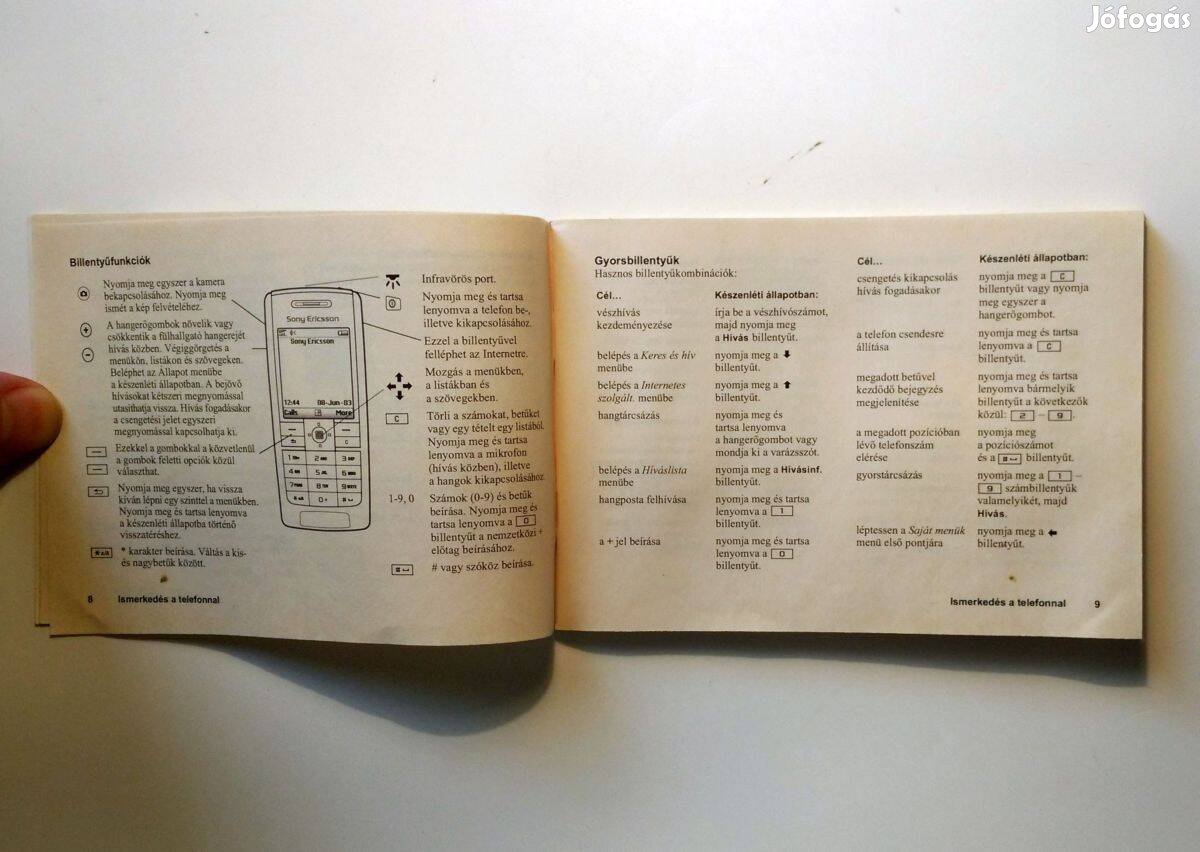 Jófogás
Billentyűfunkciók
Nyomja meg egyszer a kamera
bekapcsolásához. Nyomja meg
ismét a kép felvételéhez.
A hangerőgombok növelik vagy
csökkentik a fülhallgató hangerejét
hívás közben. Végiggörgetés a
menükön, listákon és szövegeken.
Beléphet az Állapot menübe
a készenléti állapotban. A bejövő
hívásokat kétszeri megnyomással
utasíthatja vissza. Hívás fogadásakor
a csengetési jelet egyszeri
megnyomással kapcsolhatja ki.
Ezekkel a gombokkal a közvetlenül
a gombok feletti opciók közül
választhat.
Nyomja meg egyszer, ha vissza
kíván lépni egy szinttel a menükben.
Nyomja meg és tartsa lenyomva
a készenléti állapotba történő
visszatéréshez.
* karakter beírása. Váltás a kis-
és nagybetűk között.
Sony Ericsson
Sony Ericsson
12:44 08-Jun-03
Calls More
Infravörös port.
Nyomja meg és tartsa
lenyomva a telefon be-,
illetve kikapcsolásához.
Ezzel a billentyűvel
felléphet az Internetre.
Mozgás a menükben,
a listákban és
a szövegekben.
C Törli a számokat, betűket
vagy egy tételt egy listából.
Nyomja meg és tartsa
lenyomva a mikrofon
(hívás közben), illetve
a hangok kikapcsolásához.
1-9, 0 Számok (0-9) és betűk
beírása. Nyomja meg és
tartsa lenyomva a 0
billentyűt a nemzetközi +
előtag beírásához.
# vagy szóköz beírása.
8 Ismerkedés a telefonnal
Gyorsbillentyűk
Hasznos billentyűkombinációk:
Cél... Készenléti állapotban:
vészhívás írja be a vészhívószámot,
kezdeményezése majd nyomja meg
a Hívás billentyűt.
belépés a Keres és hív nyomja meg a ⬇
menübe billentyűt.
belépés a Internetes nyomja meg a ⬆
szolgált. menübe billentyűt.
hangtárcsázás nyomja meg és
tartsa lenyomva
a hangerőgombot vagy
mondja ki a varázsszót.
belépés a Híváslista nyomja meg a Hívásinf.
menübe billentyűt.
hangposta felhívása nyomja meg és tartsa
lenyomva a 1
billentyűt.
a + jel beírása nyomja meg és tartsa
lenyomva a 0
billentyűt.
Cél... Készenléti állapotban:
csengetés kikapcsolás nyomja meg a C
hívás fogadásakor billentyűt vagy nyomja
meg egyszer a
hangerőgombot.
a telefon csendesre nyomja meg és tartsa
állítása lenyomva a C
billentyűt.
megadott betűvel nyomja meg és tartsa
kezdődő bejegyzés lenyomva bármelyik
megjelenítése billentyűt a következők
közül: 2 – 9.
a megadott pozícióban nyomja meg
lévő telefonszám a pozíciószámot
elérése és a # billentyűt.
gyorstárcsázás nyomja meg a 1 –
9 számbillentyűk
valamelyikét, majd
Hívás.
léptessen a Saját menük nyomja meg a ⬅
menü első pontjára billentyűt.
Ismerkedés a telefonnal 9